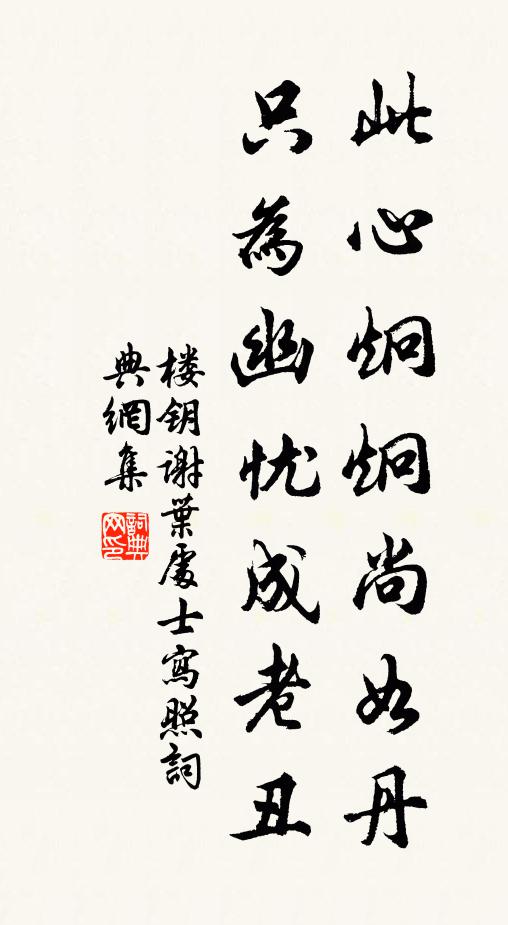 此心炯炯尚如丹
只為幽忧成老丑
楼钥谢葉處士寫照詞
典網集
詞典
网印